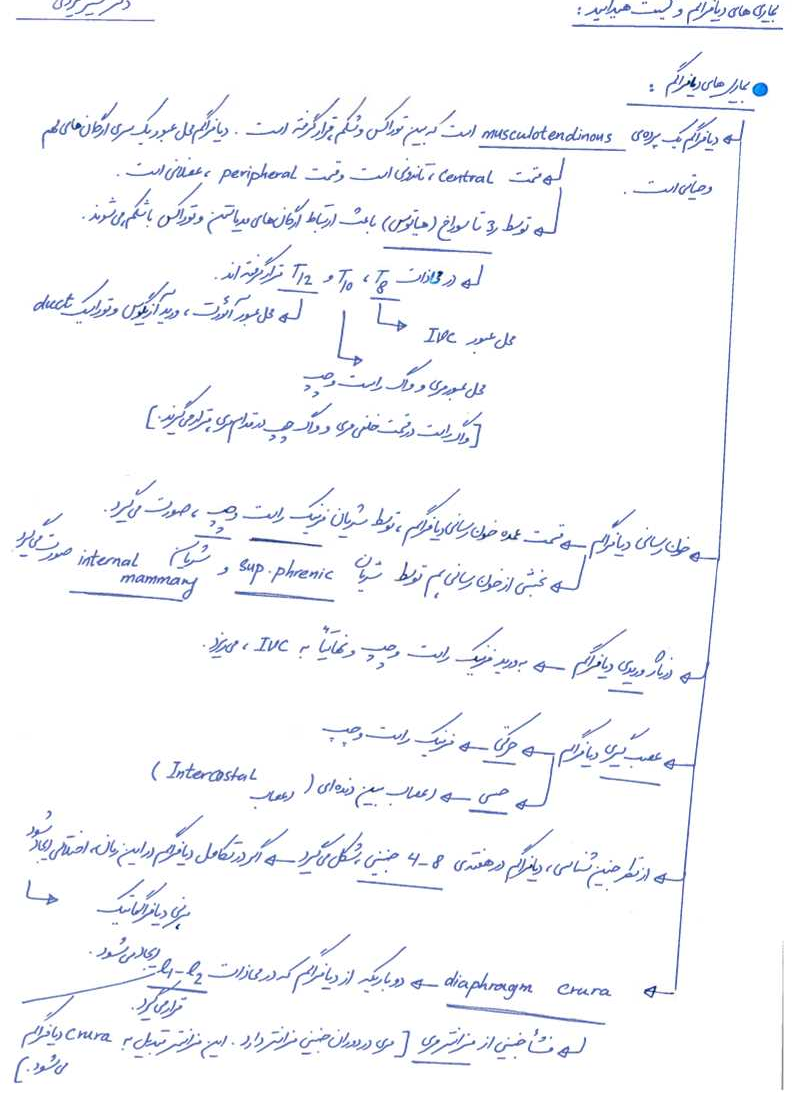 بیماری های دیافراگم و کیست هیداتید :
بیماری های دیافراگم :
دیافراگم یک پرده‌ی musculotendinous است که بین توراکس و شکم قرار گرفته است . دیافراگم محل عبور یک سری ارگان‌های مهم
و حیاتی است .
قسمت central ، تاندونی است و قسمت peripheral ، عضلانی است .
توسط 3 تا سوراخ (هیاتوس) باعث ارتباط ارگان‌های مدیاستن و توراکس با شکم می‌شوند .
در محاذات T8 ، T10 و T12 قرار گرفته اند .
محل عبور آئورت ، ورید آزیگوس و توراسیک duct
محل عبور IVC
محل عبور مری و واگ راست و چپ
[ واگ راست در قسمت خلفی مری و واگ چپ در قدام مری قرار می‌گیرند . ]
خون رسانی دیافراگم ← قسمت عمده خون رسانی دیافراگم ، توسط شریان فرنیک راست و چپ ، صورت می‌گیرد .
بخشی از خون رسانی هم توسط شریان sup. phrenic و شریان internal mammary صورت می‌گیرد
درناژ وریدی دیافراگم ← به ورید فرنیک راست و چپ و نهایتاً به IVC ، می‌ریزد .
عصب گیری دیافراگم ← حرکتی ← فرنیک راست و چپ
حسی ← اعصاب بین دنده‌ای ( اعصاب Intercostal )
از نظر جنین شناسی ، دیافراگم در هفته‌ی 4-8 جنینی شکل می‌گیرد ← اگر در تکامل دیافراگم در این زمان ، اختلالی ایجاد شود
هرنی دیافراگماتیک
ایجاد می‌شود .
diaphragm crura ← دو باریکه از دیافراگم که در محاذات L1-L2
قرار می‌گیرد .
منشأ جنینی از مزانتر مری [ مری در دوران جنینی مزانتر دارد . این مزانتر تبدیل به crura دیافراگم
می‌شود . ]